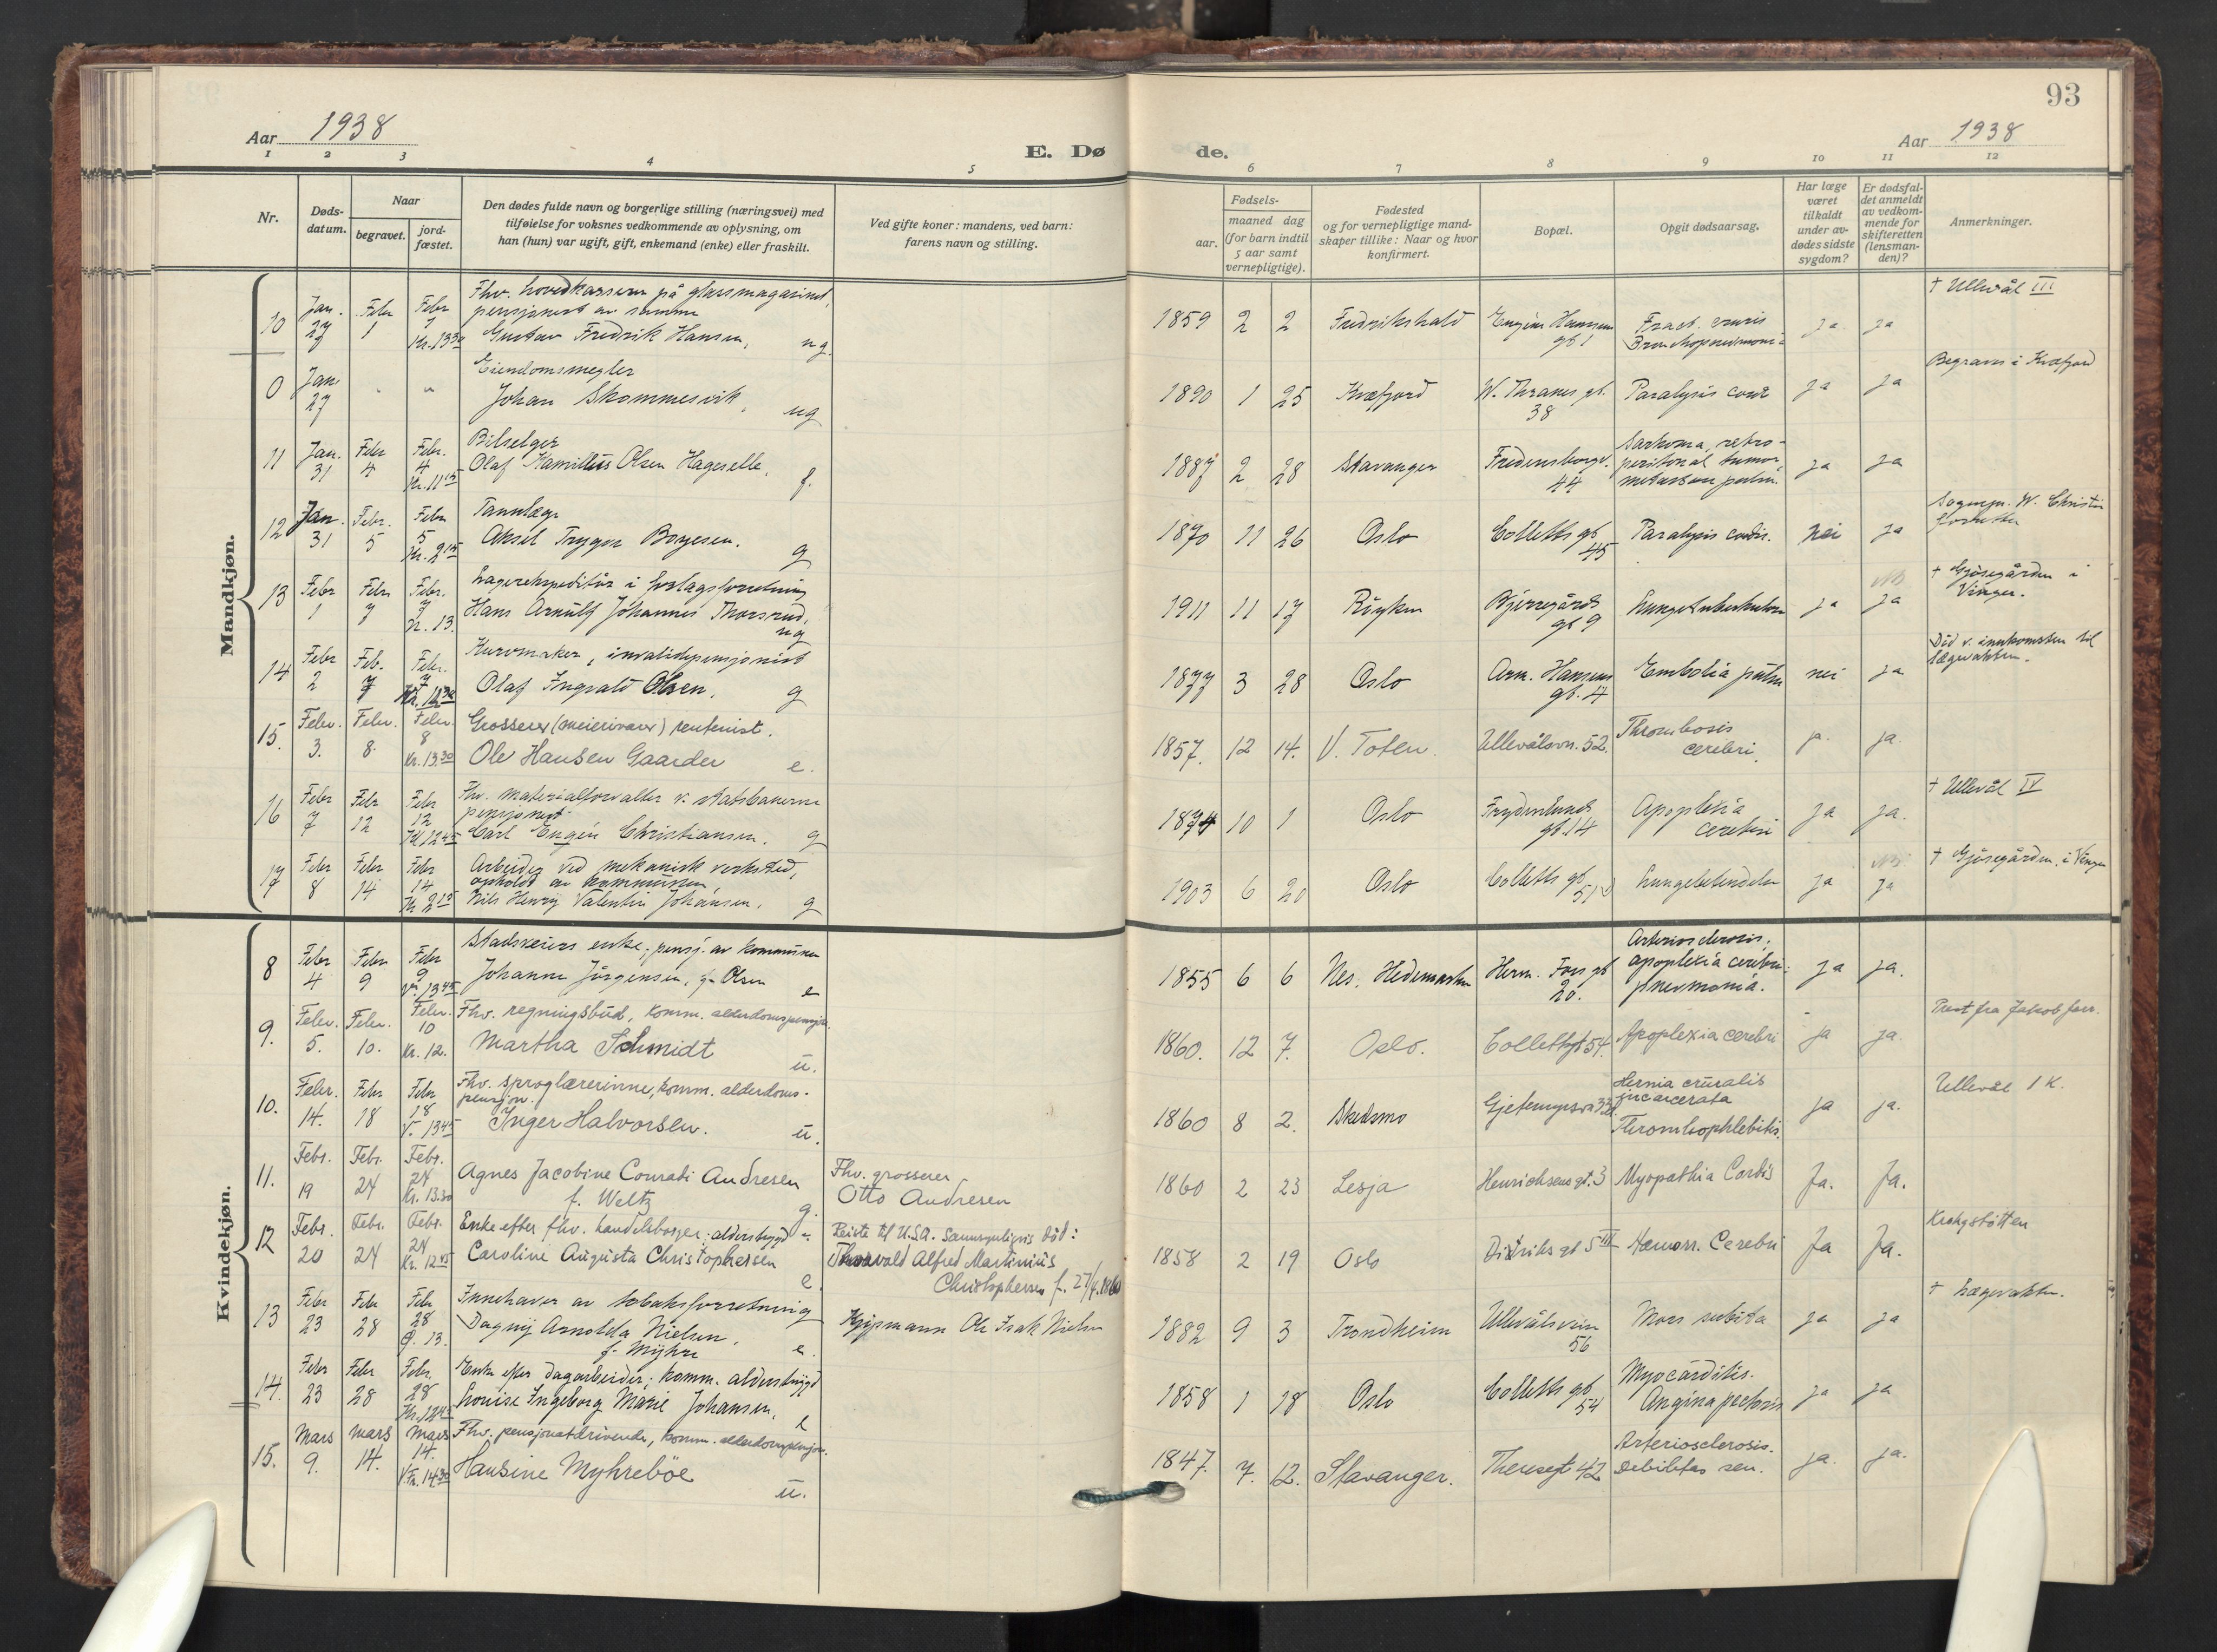 93
Aar 1938
E. Dø
de.
Aar 1938
1 2 3 4 5 6 7 8 9 10 11 12
Nr.
Døds-
datum.
Naar
begravet.
jord-
fæstet.
Den dødes fulde navn og borgerlige stilling (næringsvei) med
tilføielse for voksnes vedkommende av oplysning, om
han (hun) var ugift, gift, enkemand (enke) eller fraskilt.
Ved gifte koner: mandens, ved barn:
farens navn og stilling.
Fødsels-
aar.
maaned dag
(for barn indtil
5 aar samt
vernepligtige).
Fødested
og for vernepligtige mand-
skaper tillike: Naar og hvor
konfirmert.
Bopæl.
Opgit dødsaarsag.
Har læge
været
tilkaldt
under av-
dødes sidste
sygdom?
Er dødsfal-
det anmeldt
av vedkom-
mende for
skifteretten
(lensman-
den)?
Anmerkninger.
Mandkjøn.
10 Jan. 27 Febr 1 Febr 1 Kl. 13 30
Fhv. hovedkasserer på glassmagasinet,
pensjonert av samme
Gustav Fredrik Hansen, ug.
1859 2 2 Fredrikshald
gt 1
Fract. cruris
Bronchopneumoni
ja ja
† Ullevål III
0 Jan 27 " "
Eiendomsmegler
Johan Skommesvik, ug
1890 1 25 Kvæfjord
W. Thranes gt.
38
Paralysis cord
ja ja
Begraves i Kvæfjord
11 Jan. 31 Febr 4 Febr. 4 Kl. 11 15
Bilselger
Olaf Kamillus Olsen Hageselle, f.
1887 2 28 Stavanger
Fredensborgv.
44
Sarkoma, retro-
peritonal tumor,
ja ja
12 Jan. 31 Febr. 5 Febr 5 Kl. 2 15
Tannlæge
Aksel Trygve Borgesen. g
1870 11 26 Oslo
Colletts gt
45
Paralysis cordis.
nei ja
Sognepr. W. Christie
forretter
13 Febr 1 Febr 7 Febr. 7 Kl. 13.
Lagerekspeditør i forlagsforretning
Hans Arnulf Johannes Thorsrud,
ug
1911 11 17 Røyken
Bjerregårds
gt 9
Lungetuberkulose
ja NB. ja
† Gjøsegården i
Vinger.
14 Febr 2 Feb. 7 Febr. 7 Kl. 12 30
Kurvmaker, invalidepensjonist
Olaf Ingvald Olsen. g
1877 3 28 Oslo
Arn. Hansens
gt. 4
Embolia pulm
nei ja
Død v. innkomsten til
lægevakten.
15. Febr. 3. Febr. 8. Febr. 8 Kl. 13.30
Grosserer (meierivarer) rentenist.
Ole Hansen Gaarder e.
1857. 12 14. V. Toten.
Ullevålsvn. 52.
Thrombosis
cerebri.
ja. ja.
16 Febr 7 Febr 12 Febr 12 Kl 12 45
Fhv. materialforvalter v. statsbanerne
pensjonert
Carl Eugén Christiansen. g
1874 10 1 Oslo
Frydenlunds
gt. 14
Apoplexia
cerebri
ja ja.
† Ullevål IV
17 Febr 8 Febr 14 Febr 14 Kl 2 15
Arbeider ved mekanisk verksted,
opholdt av kommunen,
Nils Henry Valentin Johansen. g
1903 6 20 Oslo
Colletts gt
51
Lungebetendelse
ja NB. ja
† Gjøsegården i Vinger
Kvindekjøn.
8 Febr 4 Febr 9 Febr 9 V. 13 45
Stadsreiers enke, pensj. av kommunen
Johanne Jörgensen, f. Olsen e
1855 6 6 Nes. Hedemarken
Herm. Foss gt
20.
Arteriosclerosis,
apoplexia cerebri.
pnevmonia.
ja ja.
9. Febr. 5. Febr. 10. Febr. 10 Kl. 12.
Fhv. regningsbud, komm. alderdomspensjon.
Martha Schmidt u.
1860. 12 7. Oslo.
Collettsgt 54.
Apoplexia cerebri
ja ja.
Prest fra Jakob forr.
10. Febr. 14. Febr 18 Febr 18 V. 13 45
Fhv. sproglærerinne, komm. alderdoms-
pensjon.
Inger Halvorsen. u.
1860 8 2. Skedsmo
Hernia cruralis
incarcerata
Thrombophlebitis.
ja ja.
Ullevål 1 K.
11. Febr. 19 Febr. 24 Febr. 24 Kl. 13.30
Agnes Jacobine Conradi Andresen
f. Weltz g.
Fhv. grosserer
Otto Andresen
1860 2 23 Lesja
Henrichsens gt. 3
Myopathia Cordis
Ja. Ja.
12 Febr. 20 Febr. 24 Febr. 24 Kl. 12 45
Enke efter fhv. handelsborger; alderstrygd
Caroline Augusta Christophersen e
Reiste til U.S.A. Sannsynligvis død:
Thorvald Alfred Martinius
Christophersen f. 27/4.1860
1858 2 19 Oslo
Didriks gt 5 III
Hæmorr. Cerebri
Ja Ja.
Krohgstøtten
13 Febr 23 Febr 28 Febr 28 Ø. 13.
Innehaver av tobaksforretning
Dagny Arnolda Nielsen,
f. Myhre e.
Kjøpmann Ole Isak Nielsen
1882 9 3 Trondheim
Ullevålsveien
56
Mors subita
ja ja
† Lægevakten.
14. Febr 23 Febr 28 Febr. 28 Kl. 12 45
Enke efter dagarbeider; komm. alderstrygd
Louise Ingeborg Marie Johansen, e
1858 1 18 Oslo
Colletts gt
54
Myocarditis.
Angina pectoris
ja ja
15. Mars 9. Mars 14. Mars 14. V.Fr. 14 30
Fhv. pensjonatdrivende, komm. alderdomspensjon.
Hansine Myhreböe u.
1847. 7. 12. Stavanger.
Theresesgt 42
Arteriosclerosis.
Debilitas sen.
ja. ja.